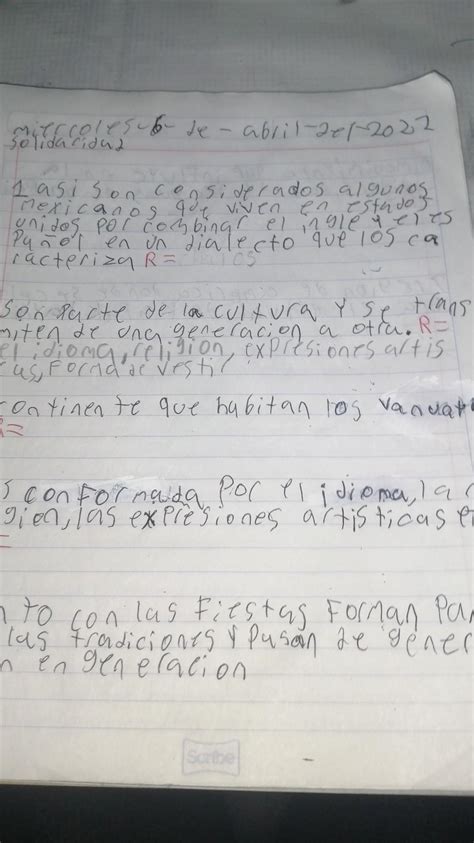 miercoles-6-de-abril-del-2022
solidaridad
1 asi son considerados algunos
mexicanos que viven en estados
unidos por combinar el ingle y el es
pañol en un dialecto que los ca
racteriza R=
son parte de la cultura y se trans
miten de una generacion a otra. R=
el idioma, religion, expresiones artis
cas, Forma de vestir
continente que habitan los vanuat
R=
s conformada por el idioma, la r
gion, las expresiones artisticas e
=
n to con las Fiestas Forman par
las tradiciones y pasan de gener
n en generacion
Scribe